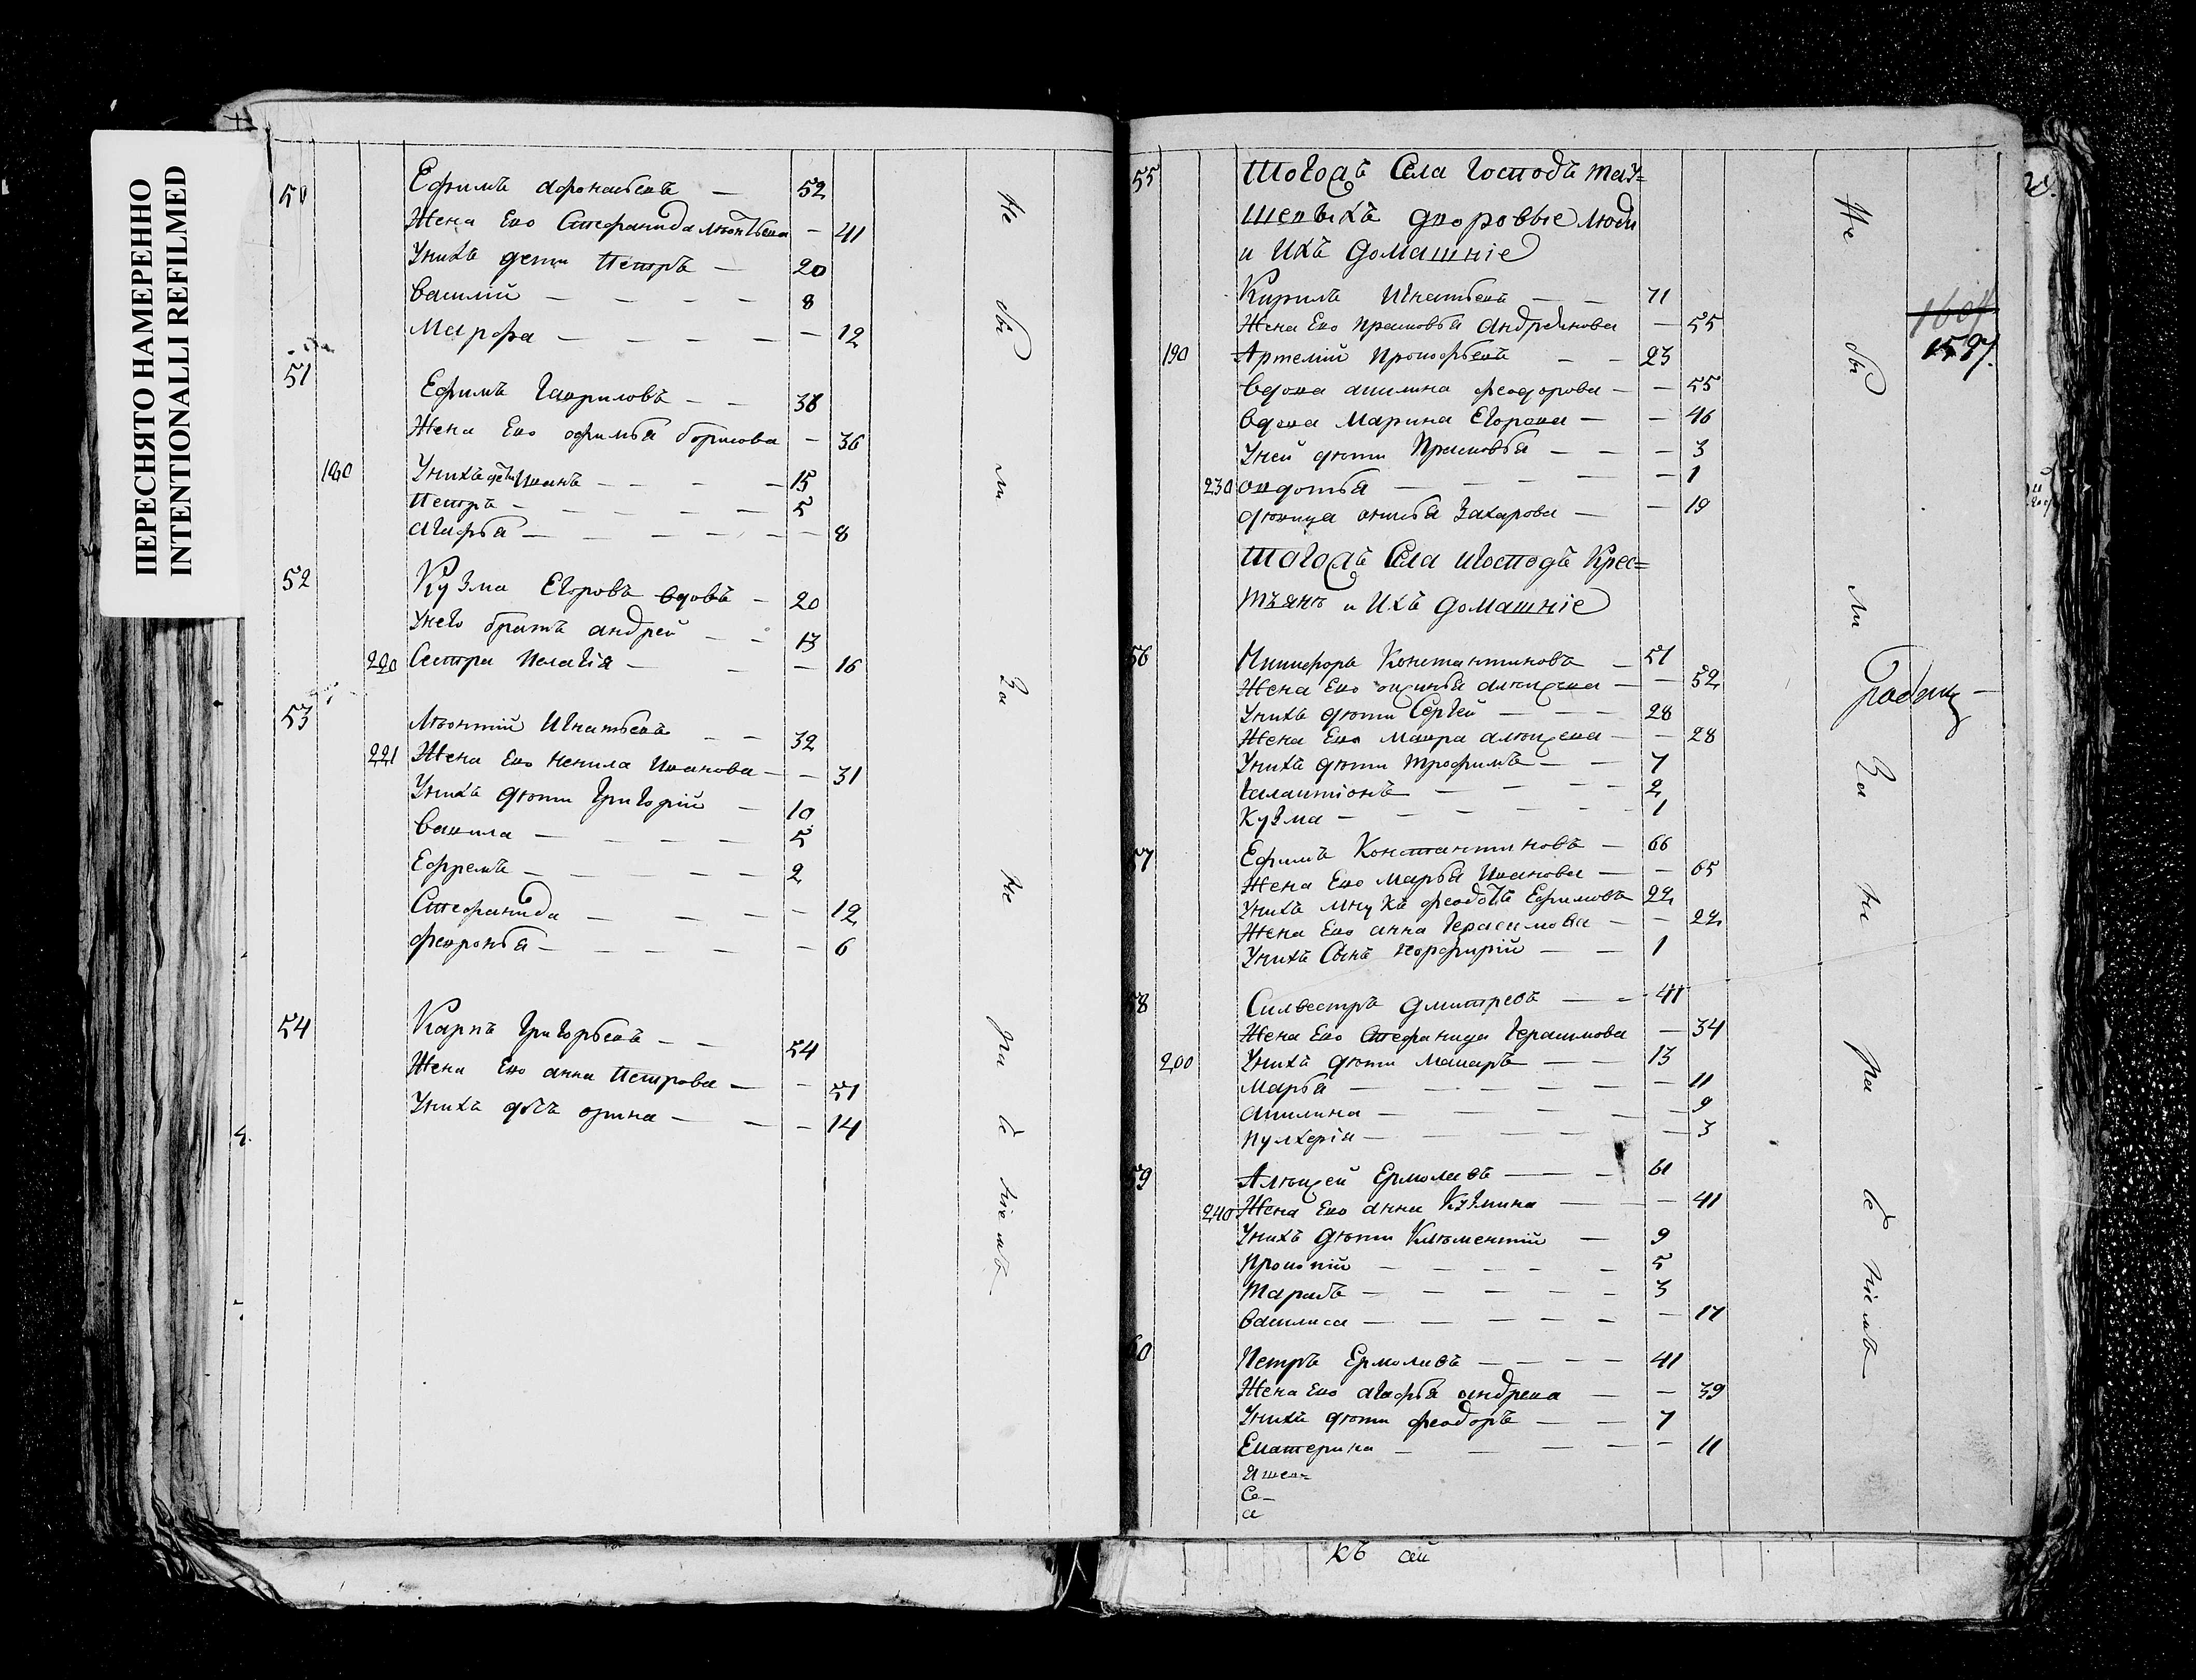 ПЕРЕСНЯТО НАМЕРЕННО
INTENTIONALLI REFILMED
50 Ефимъ Афонасьевъ — 52
Жена Ево Стефанида Леонтьева — 41
Унихъ дети Петръ — 20
Василий — — — — 8
Марфа — — — — — 12
51 Ефимъ Гавриловъ — — 38
Жена Ево Офимья Борисова — 36
180 Унихъ дети Иванъ — — — — 15
Петръ — — — — — 5
Агафья — — — — — — 8
52 Кузма Егоровъ вдовъ — 20
Унего братъ андрей — — 13
220 Сестра Пелагія — — — 16
53 Леонтій Игнатьевъ — — 32
221 Жена Ево Ненила Иванова — — 31
Унихъ дети Григорій — 10
Вавила — — — — 5
Ефремъ — — — — — 2
Стефанида — — — — 12
Февронья — — — — — 6
54 Карпъ Григорьевъ — — 54
Жена Ево анна Петрова — — 51
Унихъ дочь орина — — — 14
Не бы ли За не ра че ніемъ
55 Тогожъ Села Господъ
дворовые люди
и Ихъ домашніе
Кирилъ Игнатьевъ — — 71
Жена Ево Прасковья андреянова — 55
190 Артемий Прокофьевъ — — 23
вдова акилина феодорова — — 55
вдова Марина Егорова — — 46
Уней дети Прасковья — — — 3
230 овдотья — — — — 1
девица Захарова — — 19
Тогожъ Села Господъ Крес=
тьянъ и Ихъ домашніе
56 Никифоръ Константиновъ — 51
Жена Ево алексеева — — 52
Унихъ дети Сергей — — — 28
Жена Ево Мавра алексеева — — 28
Унихъ дети трофимъ — — 7
галактіонъ — — — — 2
Кузма — — — — — 1
57 Ефимъ Константиновъ — 66
Жена Ево Марья Иванова — — 65
Унихъ внукъ феодотъ Ефимовъ 22
Жена Ево анна Герасимова — — 22
Унихъ Сынъ порфирій — — 1
58 Силвестръ дмитревъ — — 41
Жена Ево Стефанида Герасимова — 34
200 Унихъ дети Макаръ — — 13
Марья — — — — — — 11
Акилина — — — — — 9
пулхерія — — — — — 3
59 Алексей Ермолаевъ — — — 61
240 Жена Ево анна Кузмина — — 41
Унихъ дети Клементий — 9
прокопій — — — — — 5
тарасъ — — — — — 3
василиса — — — — — — 17
60 Петръ Ермолаевъ — — — — 41
Жена Ево агафья андреева — — 39
Унихъ дети феодоръ — — 7
Екатерина — — — — — 11
Се-
Не бы ли За не ра че ніемъ
1597
къ сей